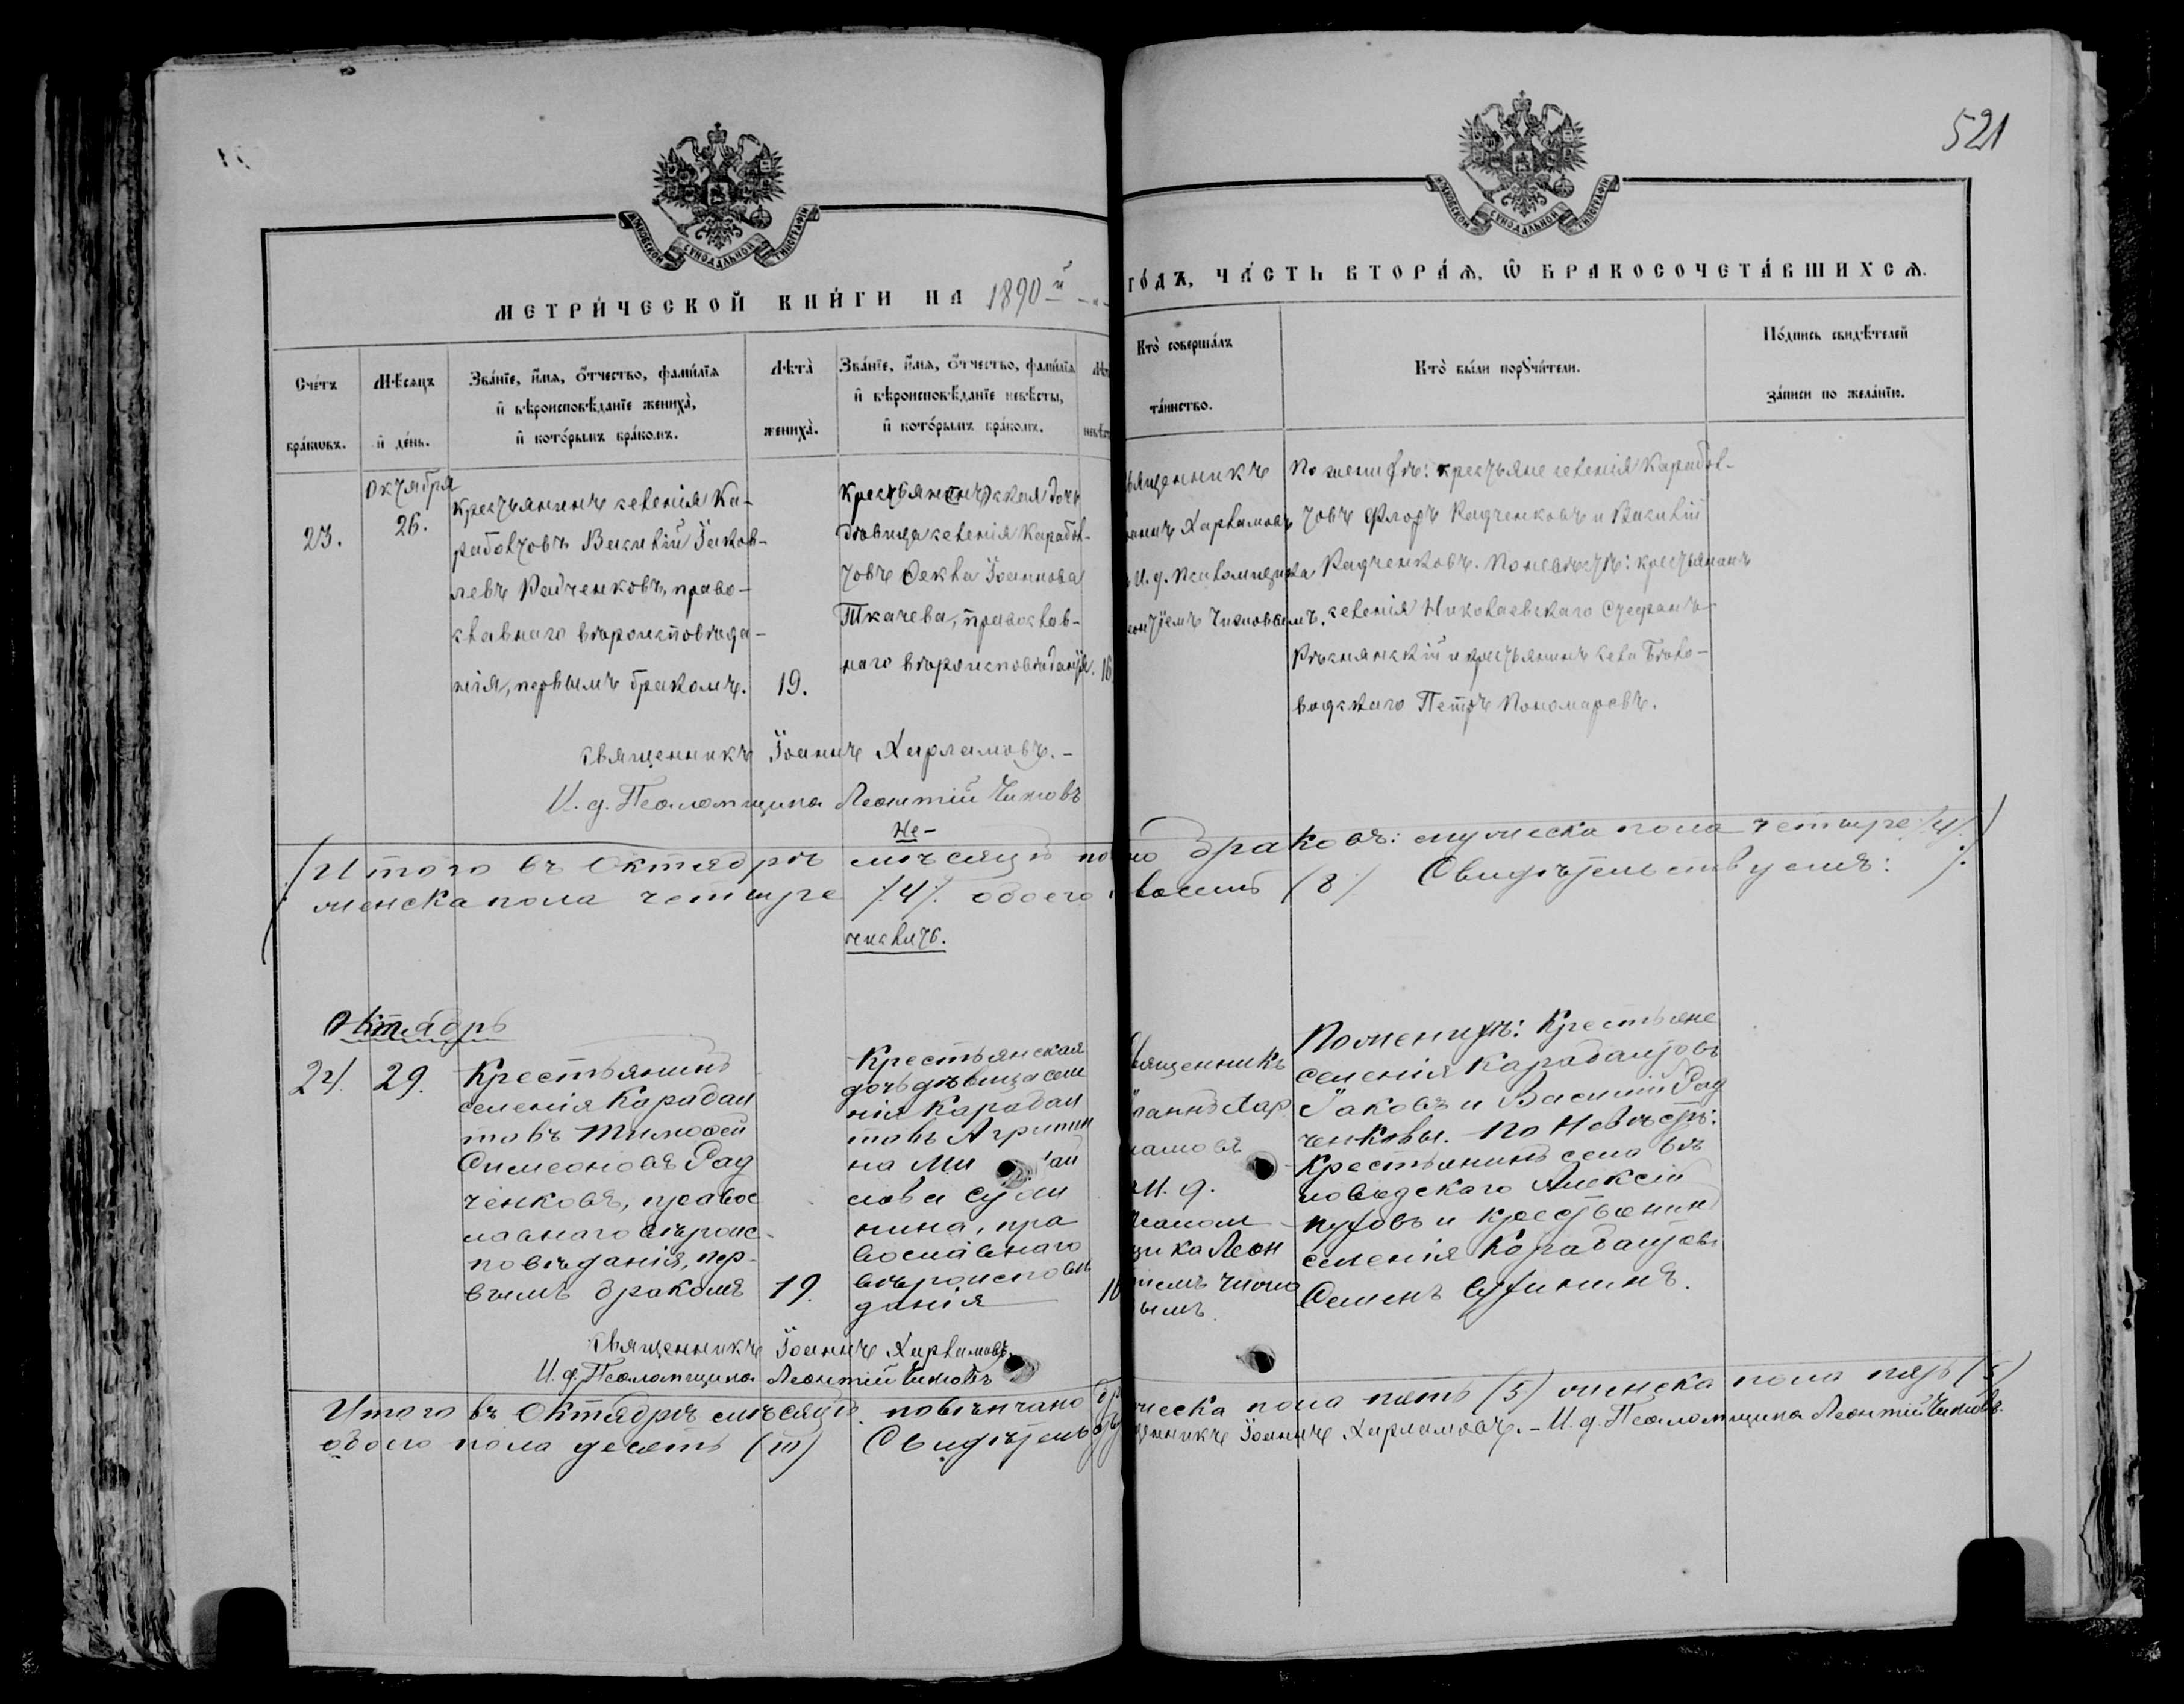 521
МОСКОВСКОЙ СѴНОДАЛЬНОЙ ТИПОГРАФІИ
МОСКОВСКОЙ СѴНОДАЛЬНОЙ ТИПОГРАФІИ
МЕТРИ́ЧЕСКОЙ КНИ́ГИ НА 1890-й
ГО́ДЪ, ЧА́СТЬ ВТОРА́Ѧ, Ѽ БРАКОСОЧЕТА́ВШИХСѦ.
Сче́тъ
бра́кѡвъ.
Мѣ́сѧцъ
и҆ де́нь.
Зва́нїе, и҆́мѧ, ѻ҆́тчество, фамѝлїѧ
и҆ вѣроисповѣ́данїе жениха̀,
и҆ кото́рымъ бра́комъ.
Лѣ́та
жениха̀.
Зва́нїе, и҆́мѧ, ѻ҆́тчество, фамѝлїѧ
и҆ вѣроисповѣ́данїе невѣ́сты,
и҆ кото́рымъ бра́комъ.
Кто̀ соверша́лъ
та́инство.
Кто̀ бы́ли порꙋчи́тели.
По́дпись свидѣ́телей
за́писи по жела́нїю.
23.
Октября
26.
Крестьянинъ селенія Ка-
рабалтовъ Василій Іаков-
левъ Радченковъ, право-
славнаго вѣроисповѣда-
нія, первымъ бракомъ.
19.
дочь
дѣвица селенія Карабал-
товъ Ѳекла Іоаннова
Ткачева, православ-
наго вѣроисповѣданія. 16
ященникъ
оаннъ Харламовъ
и. д. псаломщика
еонтіемъ Чижовымъ.
По женихѣ: крестьяне селенія Карабал-
товъ Флоръ Радченковъ и Василій
Радченковъ. По невѣстѣ: крестьянинъ
селенія Николаевскаго Стефанъ
и крестьянинъ села Бѣло-
водскаго Петръ Пономаревъ.
Священникъ Іоаннъ Харламовъ.-
И. д. Псаломщика Леонтій Чижовъ
Не-
Итого въ Октябрѣ мѣсяцѣ по но браковъ: мужеска пола четыре /4/
женска пола четыре /4/. обоего восемь /8/ Свидѣтельствуемъ:
числить.
Октябрь
24. 29.
Крестьянинъ
селенія Карабал
товъ Тимоѳей
Симеоновъ Рад
ченковъ, правос
лавнаго вѣроис-
повѣданія, пер-
вымъ бракомъ
19.
Крестьянская
дочь дѣвица селе
нія Карабал
товъ Агрипин
на Ми аи
лова
нина, пра
вославнаго
вѣроисповѣ
данія
16
вященникъ
оаннъ Хар
ламовъ
И. д.
псалом
щика Леон
тіемъ Чижо
вымъ.
По женихѣ: Крестьяне
селенія Карабалтовъ
Іаковъ и Василій Рад
ченковы. По Невѣстѣ:
Крестьянинъ села Бѣ
ловодскаго Алексій
и крестьянинъ
селенія Карабалтовъ
Семенъ
Священникъ Іоаннъ Харламовъ.
И. д. Псаломщика Леонтій Чижовъ
Итого въ Октябрѣ мѣсяцѣ повѣнчано бр жеска пола пять (5) женска пола пять (5)
обоего пола десять (10) Свидѣтельству щенникъ Іоаннъ Харламовъ.- И. д. Псаломщика Леонтій Чижовъ.